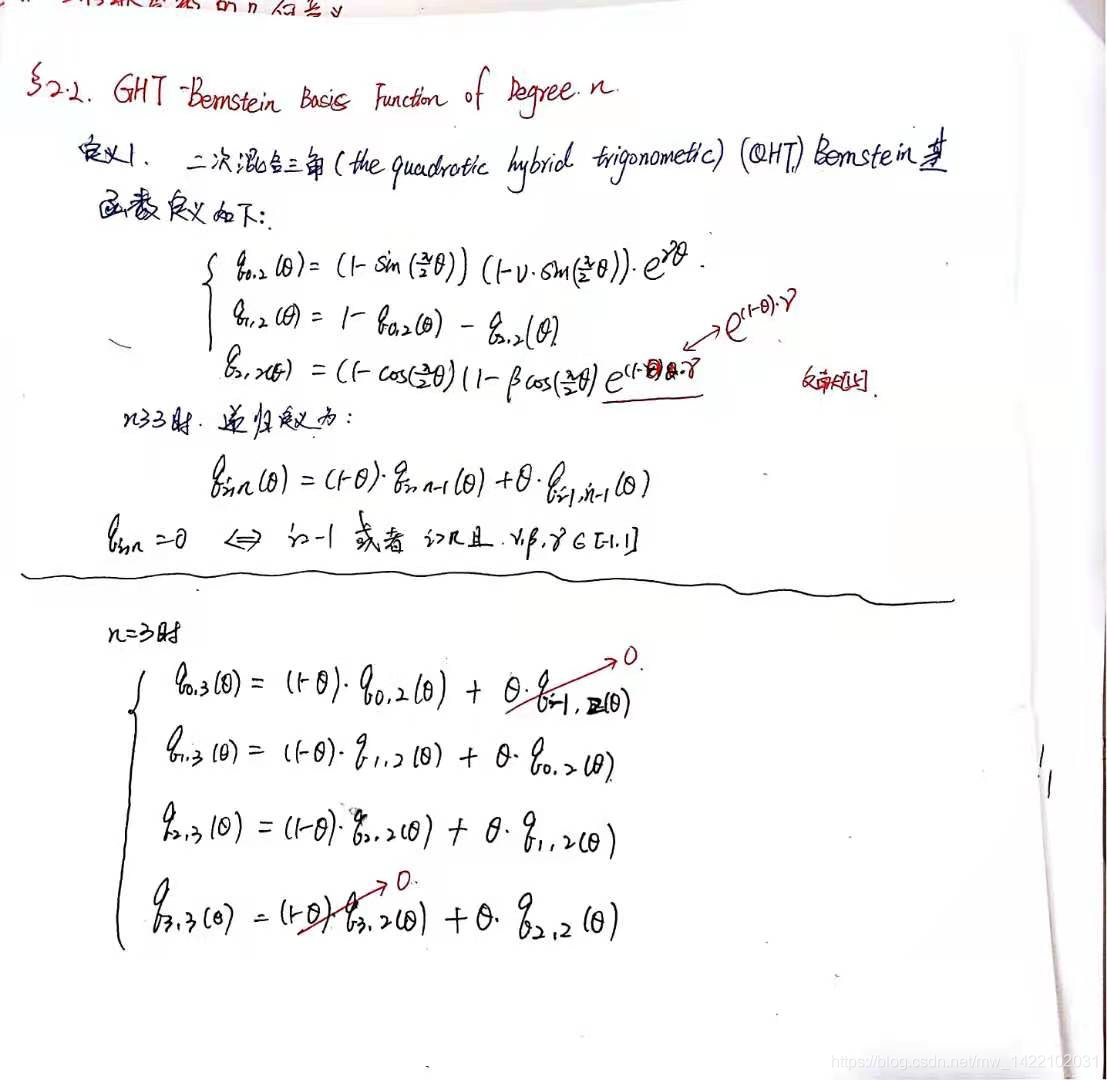 的几何意义
§2.2. GHT-Bernstein Basis Function of Degree n.
定义1. 二次混合三角(the quadratic hybrid trigonometic)(QHT) Bernstein 基
函数定义如下:
q₀,₂(θ) = (1- sin(π/2 θ)) (1-ν·sin(π/2 θ))·e^{γθ}.
q₁,₂(θ) = 1- q₀,₂(θ) - q₂,₂(θ)
e^{(1-θ)·γ}
q₂,₂(θ) = (1- cos(π/2 θ)(1-βcos(π/2 θ) e^{(1-θ)·γ}
文献[15].
n≥3时. 递归定义为:
qᵢ,ₙ(θ) = (1-θ)·qᵢ,ₙ₋₁(θ) + θ·qᵢ₋₁,ₙ₋₁(θ)
qᵢ,ₙ =0 ⇔ i=-1 或者 i>n 且 ν,β,γ∈[-1,1]
n=3时
0.
q₀,₃(θ) = (1-θ)·q₀,₂(θ) + θ·qᵢ₋₁,₂(θ)
q₁,₃(θ) = (1-θ)·q₁,₂(θ) + θ·q₀,₂(θ)
q₂,₃(θ) = (1-θ)·q₂,₂(θ) + θ·q₁,₂(θ)
0.
q₃,₃(θ) = (1-θ)·q₃,₂(θ) + θ·q₂,₂(θ)
https://blog.csdn.net/mw_1422102031